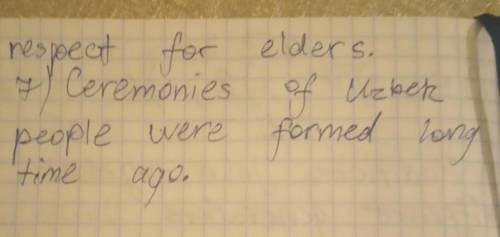 respect for elders.
7) Ceremonies of Uzbek
people were formed long
time ago.